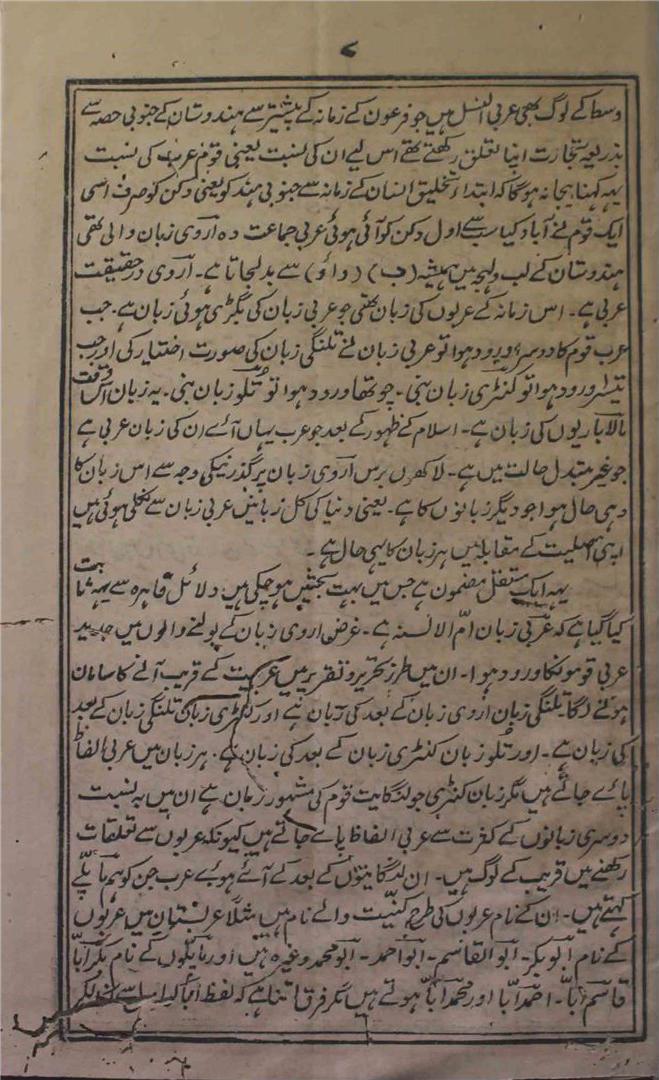 ۷
وسط کے لوگ بھی عربی النسل ہیں جو فرعون کے زمانہ کے پیشتر سے ہندوستان کے جنوبی حصہ سے
بذریعہ تجارت اپنا تعلق رکھتے تھے اس لیے ان کی نسبت یعنی قوم عرب کی نسبت
یہہ کہنا بیجا نہ ہوگا کہ ابتداء تخلیق انسان کے زمانہ سے جنوبی ہند کو یعنی دکن کو صرف اسی
ایک قوم نے آباد کیا سب سے اول دکن کو آئی ہوئی عربی جماعت دہ اَروی زبان والی تھی
ہندوستان کے لب ولہجہ میں ہمیشہ (ب) (واو) سے بدلجاتا ہے۔ اَروی درحقیقت
عربی ہے۔ اس زمانہ کے عربوں کی زبان تھی جو عربی زبان کی بگڑی ہوئی زبان ہے۔ جب
عرب قوم کا دوسرا ورود ہوا تو عربی زبان نے تلنگی زبان کی صورت اختیار کی اور جب
تیسرا ورود ہوا تو کنٹری زبان بنی۔ چوتھا ورود ہوا تو تُلو زبان بنی۔ یہ زبان اس وقت
مالاباریوں کی زبان ہے۔ اسلام کے ظہور کے بعد جو عرب یہاں آئے ان کی زبان عربی ہے
جو غیر متبدل حالت میں ہے۔ لاکھوں برس اَروی زبان پر گذرنیکی وجہ سے اس زبان کا
وہی حال ہوا جو دیگر زبانوں کا ہے۔ یعنی دنیا کی کل زبانیں عربی زبان سے نکلی ہوئی ہیں
اپنی اصلیت کے مقابلہ میں ہر زبان کا یہی حال ہے۔
یہہ ایک مستقل مضمون ہے جس میں بہت بحثیں ہوچکی ہیں دلائل قاہرہ سے یہہ ثابت
کیا گیا ہے کہ عربی زبان امّ الالسنہ ہے۔ غرض اروی زبان کے بولنے والوں میں جدید
عربی قوموں کا ورود ہوا۔ ان میں طرز تحریر و تقریر میں عربیت کے قریب آنے کا سامان
ہونے لگا تلنگی زبان اَروی زبان کے بعد کی زبان ہے اور کنٹری زبان تلنگی زبان کے بعد
کی زبان ہے۔ اور تُلو زبان کنٹری زبان کے بعد کی زبان ہے۔ ہر زبان میں عربی الفاظ
پائے جاتے ہیں مگر زبان کنٹری جو لنگایت قوم کی مشہور زبان ہے ان میں بہ نسبت
دوسری زبانوں کے کثرت سے عربی الفاظ پائے جاتے ہیں کیونکہ عربوں سے تعلقات
رکھنے میں قریب کے لوگ ہیں۔ ان لنگایتوں کے بعد کے آئے ہوئے عرب جن کو ہم ماپلے
کہتے ہیں۔ ان کے نام عربوں کی طرح کنیّت والے نام ہیں مثلاً عربستان میں عربوں
کے نام ابوبکر۔ ابوالقاسم۔ ابواحمد۔ ابومحمد وغیرہ ہیں اور ماپلّوں کے نام بکراَبّا
قاسم اَبّا۔ احمد اَبّا اور محمد اَبّا ہوتے ہیں مگر فرق اتنا ہے کہ لفظ اَبّا